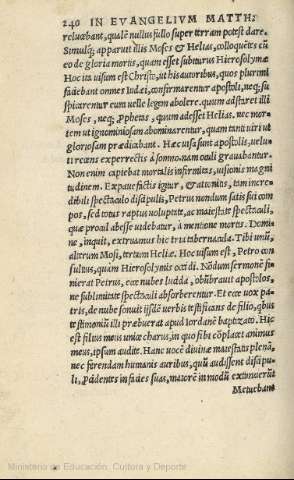 240 IN EVANGELIVM MATTH:
relucebant, qualẽ nullus fullo super terram potest dare.
Simulq́; apparuit illis Moses & Helias, colloquẽtes cũ
eo de gloria mortis, quam esset subiturus Hierosolymæ
Hoc ita uisum est Christo, ut his autoribus, quos plurimi
faciebant omnes Iudæi, confirmarentur apostoli, neq; su
spicarentur eum uelle legem abolere. quum adstaret illi
Moses, neq; Pphetas, quum adesset Helias. nec mor-
tem ut ignominiosam abominarentur, quam tanti uiri ut
gloriosam prædicabant. Hæc uisa sunt apostolis, uelu-
ti recens experrectis à somno. nam oculi grauabantur.
Non enim capiebat mortalis infirmitas, uisionis magni
tudinem. Expauefactis igitur, & attonitis, tam incre-
dibili spectaculo discipulis, Petrus nondum satis sui com
pos, sed totus raptus uoluptate, ac maiestate spectaculi,
quæ procul abesse uidebatur, à mentione mortis. Domi
ne, inquit, extruamus hic tria tabernacula. Tibi unũ,
alterum Mosi, tertium Heliæ. Hoc uisum est, Petro con
sultius, quàm Hierosolymis occidi. Nõdum sermonẽ fi-
nierat Petrus, ecce nubes lucida, obũbrauit apostolos,
ne sublimitate spectaculi absorberentur. Et ecce uox pa-
tris, de nube sonuit ijsdẽ uerbis testificans de filio, qbus
testimoniũ illi præbuerat apud Iordanẽ baptizato. Hic
est filius meus unicè charus, in quo sibi cõplacet animus
meus, ipsum audite. Hanc uocẽ diuinæ maiestatis plenã,
nec ferendam humanis auribus, quũ audissent discipu-
li, pcidentes in facies suas, maiorẽ in modũ extimuerũt
Metuebant
Ministerio de Educación, Cultura y Deporte